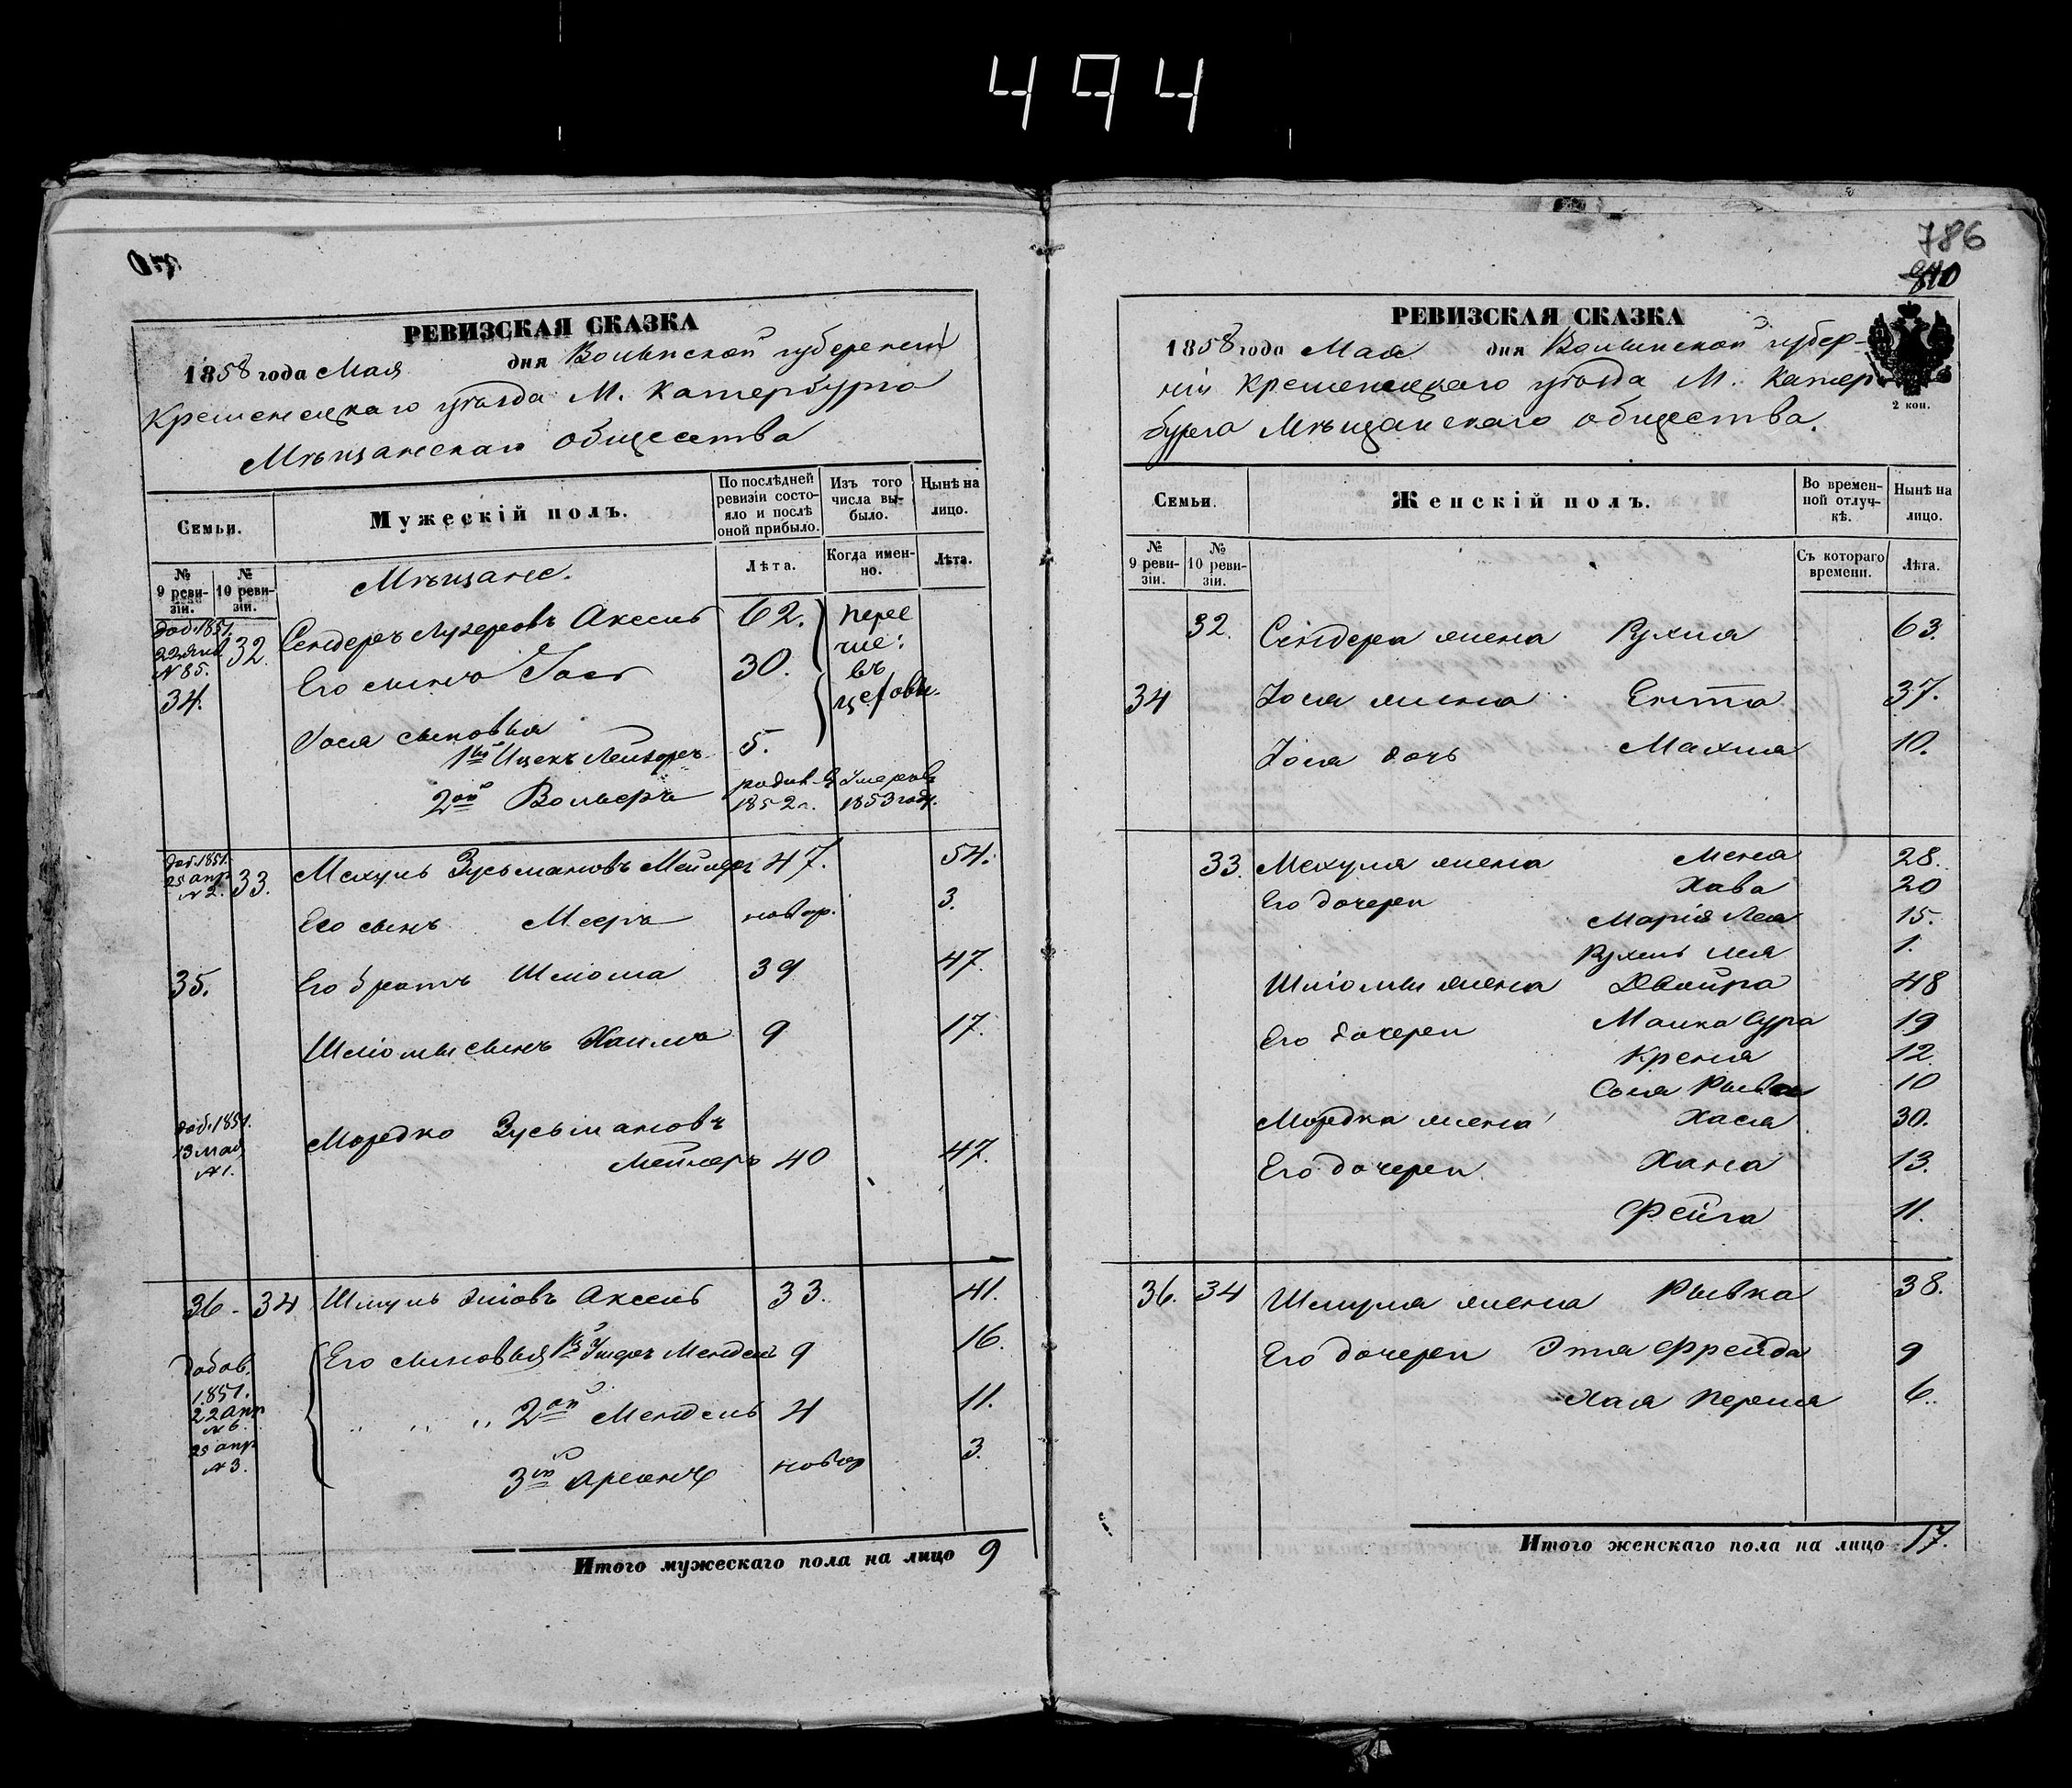 494
РЕВИЗСКАЯ СКАЗКА
1858 года Мая дня Волынской губерніи
Кременецкаго уѣзда М. Катербурга
Мѣщанскаго общества
Семьи.
Мужескій полъ.
По послѣдней ревизіи состояло и послѣ оной прибыло.
Изъ того числа выбыло.
Нынѣ на лицо.
№ 9 ревизіи.
№ 10 ревизіи.
Лѣта.
Когда именно.
Лѣта.
Мѣщане.
доб. 1851.
№ 85.
32. Сендеръ Аксель 62. пере
Его сынъ Іось 30. въ
34.
Іося сыновья
1й Ицекъ Лейзоръ 5.
2ой Вольверъ родив. въ 1852 г. Умеръ въ 1853 году.
доб. 1851.
25 апр
№ 2. 33. Мехуль Зусьмановъ Мейлеръ 47. 54.
Его сынъ Мееръ новор. 3.
35. Его братъ Шліома 39 47.
Шліомы сынъ Хаимъ 9 17.
доб. 1851.
13 мая
№ 1.
Мордко Зусьмановъ
Мейлеръ 40 47.
36 - 34 Шмуль Аксель 33. 41.
Его сыновья 1й Мендель 9 16.
добав.
1851.
22 апр
№ 6.
25 апр
№ 3.
„ „ „ 2ой Мендель 4 11.
3й новор 3.
Итого мужескаго пола на лицо 9
786
840
РЕВИЗСКАЯ СКАЗКА
1858 года Мая дня Волынской губер-
ніи Кременецкаго уѣзда М. Катер-
бурга Мѣщанскаго общества.
2 коп.
Семьи.
Женскій полъ.
Во временной отлучкѣ.
Нынѣ на лицо.
№ 9 ревизіи.
№ 10 ревизіи.
Съ котораго времени.
Лѣта.
32. Сендера жена Рухля 63.
34 Іося жена Ента 37.
Іося дочь Махля 10.
33. Мехуля жена Меня 28.
Его дочери Хава 20
Марія Лея 15.
Рухель Лея 1.
Шліомы жена Двойра 48
Его дочери Малка Сура 19
Креня 12
Рывка 10
Мордка жена Хася 30.
Его дочери Хана 13.
Фейга 11.
36. 34 Шмуля жена Рывка 38.
Его дочери Этя Фрейда 9
Хая Перля 6.
Итого женскаго пола на лицо 17.